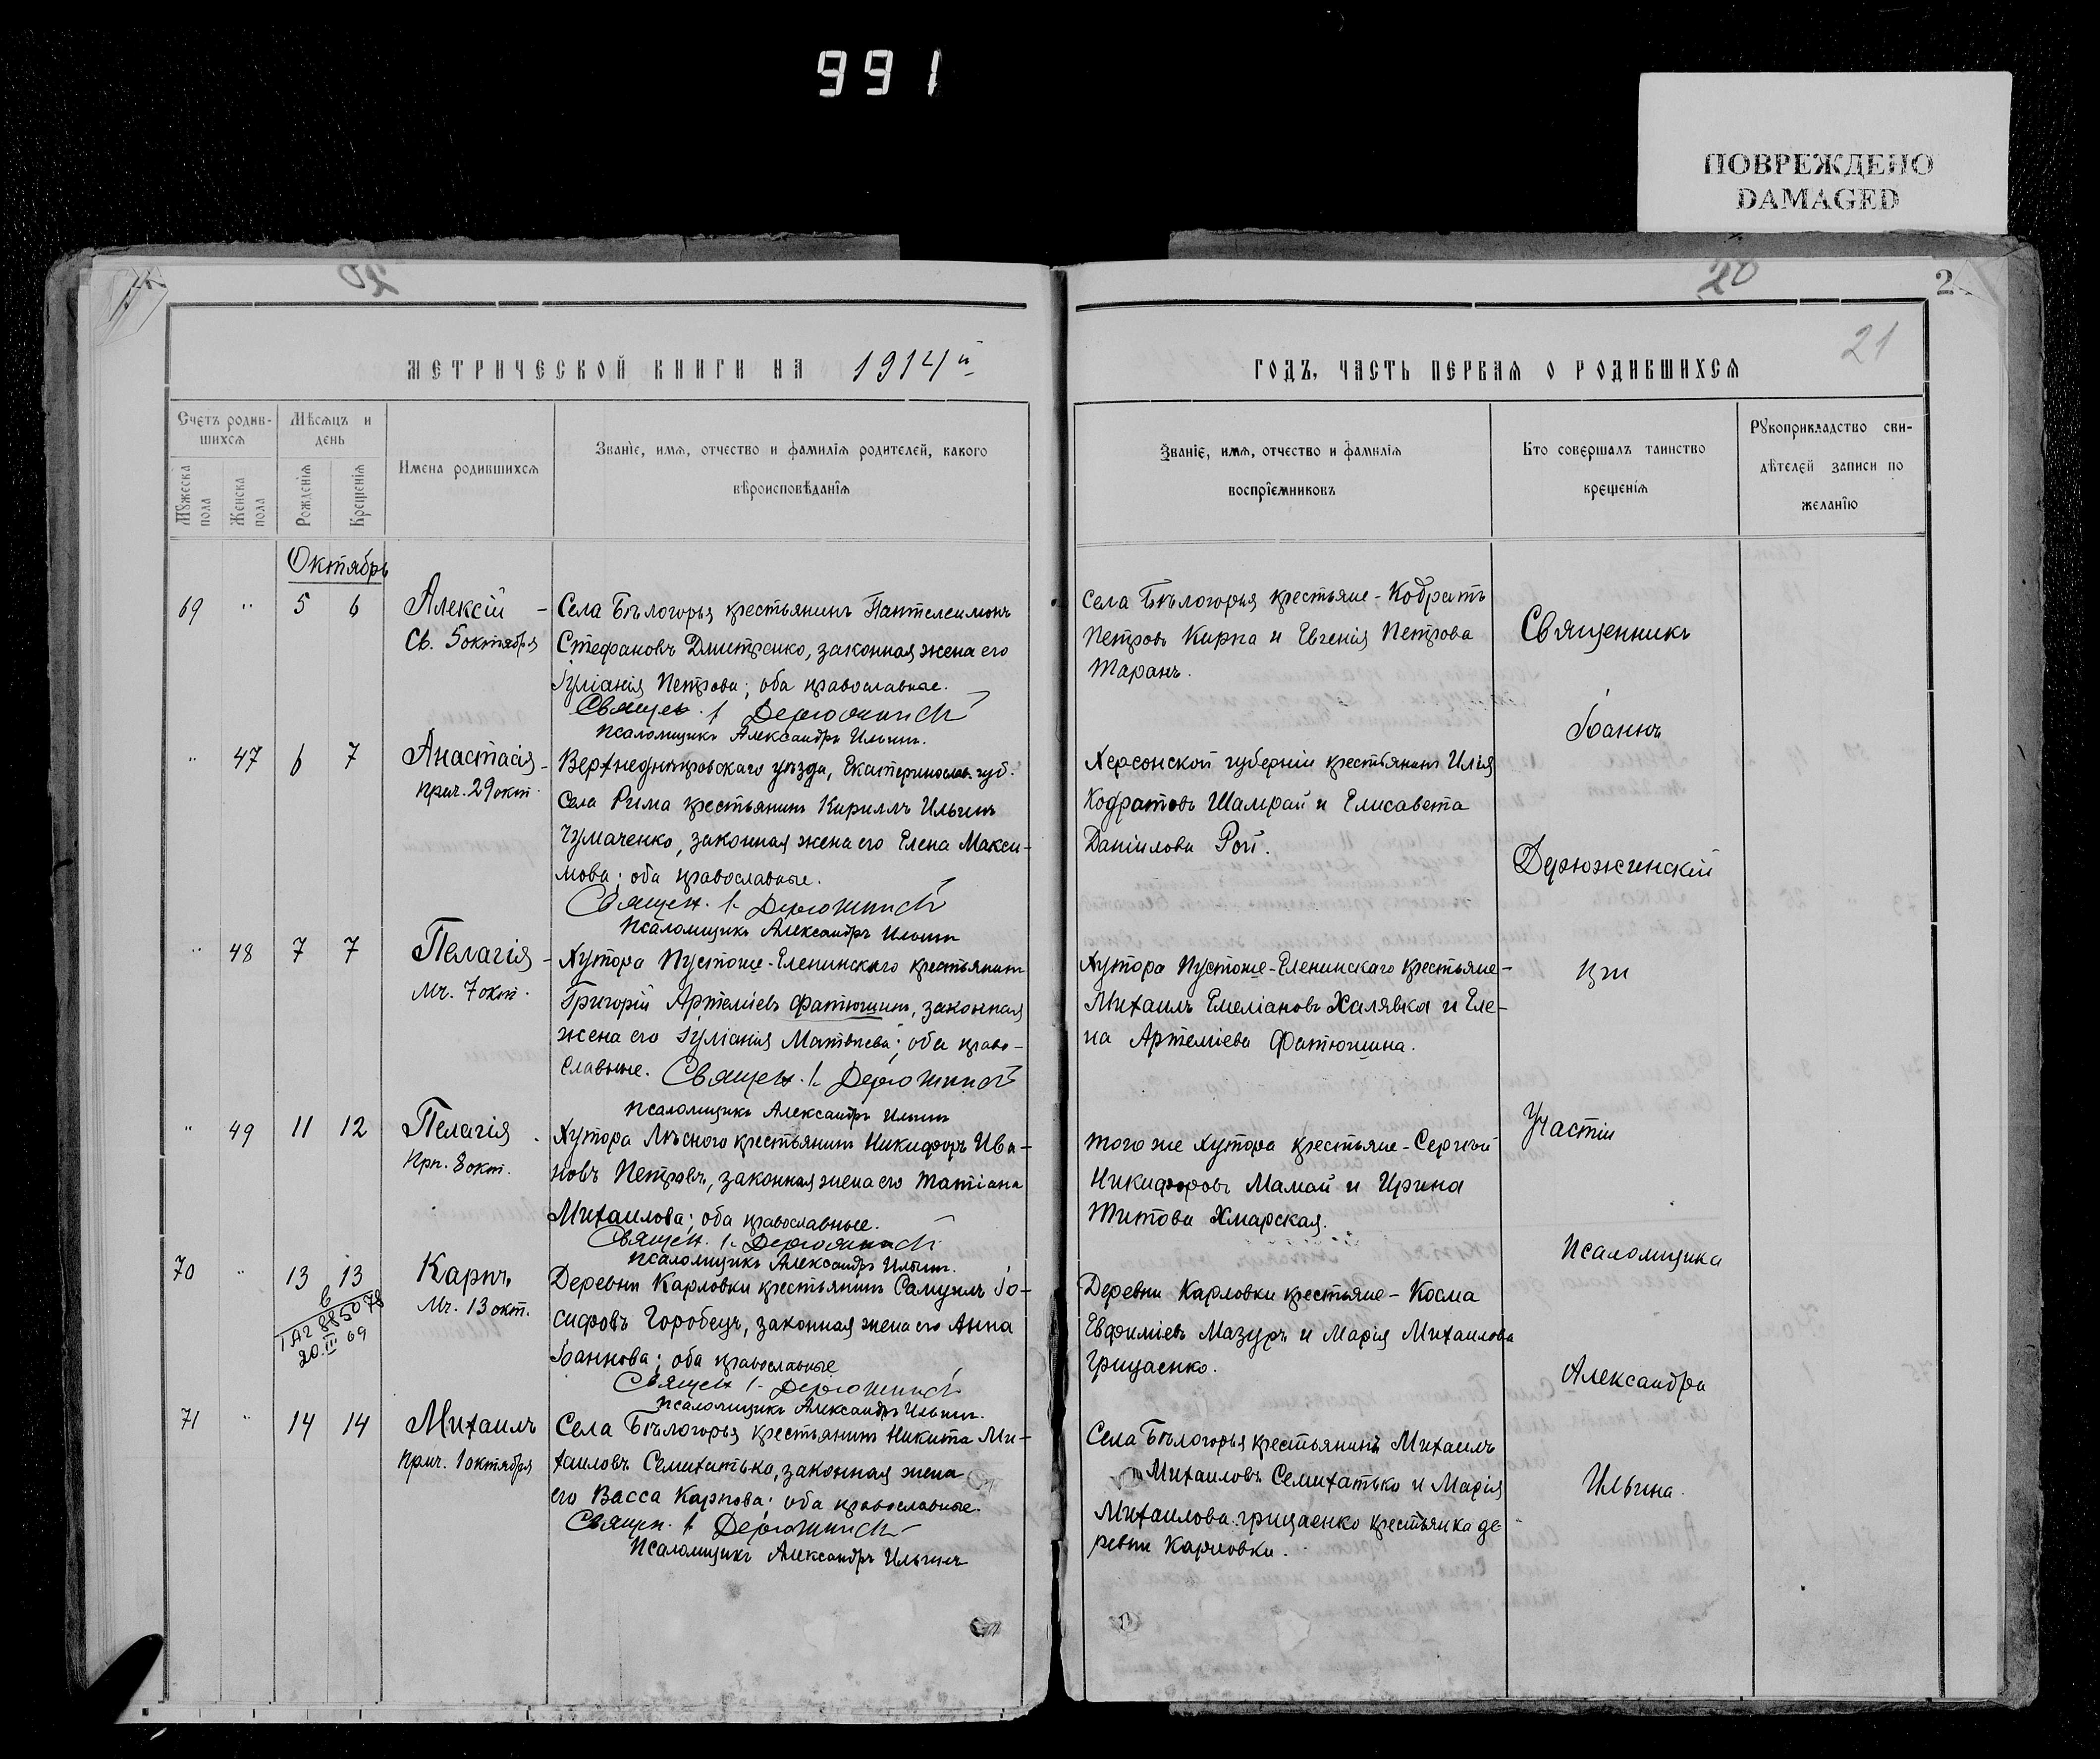 991
ПОВРЕЖДЕНО
DAMAGED
20
МЕТРИЧЕСКОЙ КНИГИ НА 1914й
Счетъ родив-
шихся
Мѣсяцъ и
день
Мужеска
пола
Женска
пола
Рожденія
Крещенія
Имена родившихся
Званіе, имя, отчество и фамилія родителей, какого
вѣроисповѣданія
Октябрь
69 " 5 6 Алексій -
Св. 5 октября
Села Бѣлогорья крестьянинъ Пантелеимонъ
Стефановъ Дмитренко, законная жена его
Іуліанія Петрова; оба православные.
Священ. І. Дерюжинскій
Псаломщикъ Александръ Ильинъ.
" 47 6 7 Анастасія -
прмч. 29 окт.
Верхнеднѣпровскаго уѣзда, Екатеринослав. губ.
Села Рима крестьянинъ Кириллъ Ильинъ
Чумаченко, законная жена его Елена Макси-
мова; оба православные.
Священ. І. Дерюжинскій
Псаломщикъ Александръ Ильинъ
" 48 7 7 Пелагія -
Мч. 7 окт.
Хутора Пустоше-Еленинскаго крестьянинъ
Григорій Артеміевъ Фатюшинъ, законная
жена его Іуліанія Матвѣева; оба право-
славные. Священ. І. Дерюжинскій
Псаломщикъ Александръ Ильинъ
" 49 11 12 Пелагія .
Прп. 8 окт.
Хутора Лѣсного крестьянинъ Никифоръ Ива-
новъ Петровъ, законная жена его Татіана
Михаилова; оба православные.
Священ. І. Дерюжинскій
Псаломщикъ Александръ Ильинъ.
70 " 13 13 Карпъ
Мч. 13 окт.
20.III 69
Деревни Карловки крестьянинъ Самуилъ Іо-
сифовъ Горобецъ, законная жена его Анна
Іоаннова; оба православные
Священ. І. Дерюжинскій
Псаломщикъ Александръ Ильинъ.
71 " 14 14 Михаилъ
прмч. 1 октября
Села Бѣлогорья крестьянинъ Никита Ми-
хаиловъ Семихатько, законная жена
его Васса Карпова; оба православные.
Священ. І. Дерюжинскій
Псаломщикъ Александръ Ильинъ
20
2
21
ГОДЪ, ЧАСТЬ ПЕРВАЯ О РОДИВШИХСЯ
Званіе, имя, отчество и фамилія
воспріемниковъ
Кто совершалъ таинство
крещенія
Рукоприкладство сви-
дѣтелей записи по
желанію
Села Бѣлогорья крестьяне - Кодратъ
Петровъ Кирпа и Евгенія Петрова
Таранъ.
Херсонской губерніи крестьянинъ Илья
Кодратовъ Шамрай и Елисавета
Даніилова Рой.
Хутора Пустоше-Еленинскаго крестьяне -
Михаилъ Емеліановъ Халявка и Еле-
на Артеміева Фатюшина.
Того же хутора крестьяне - Сергѣй
Никифоровъ Мамай и Ирина
Титова Хмарская.
Деревни Карловки крестьяне - Косма
Евфиміевъ Мазуръ и Марія Михаилова
Грицаенко.
Села Бѣлогорья крестьянинъ Михаилъ
Михаиловъ Семихатько и Марія
Михаилова Грицаенко крестьянка де-
ревни Карловки.
Священникъ
Іоаннъ
Дерюжинскій
при
участіи
Псаломщика
Александра
Ильина.